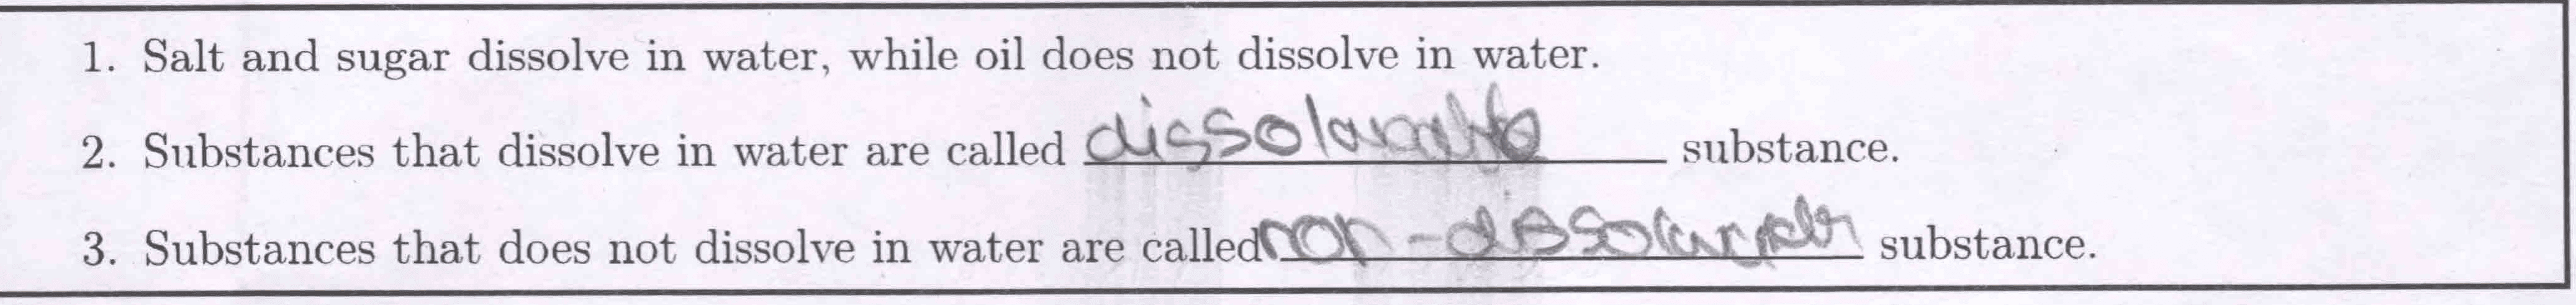 1. Salt and sugar dissolve in water, while oil does not dissolve in water.
2. Substances that dissolve in water are called substance.
3. Substances that does not dissolve in water are called non- substance.